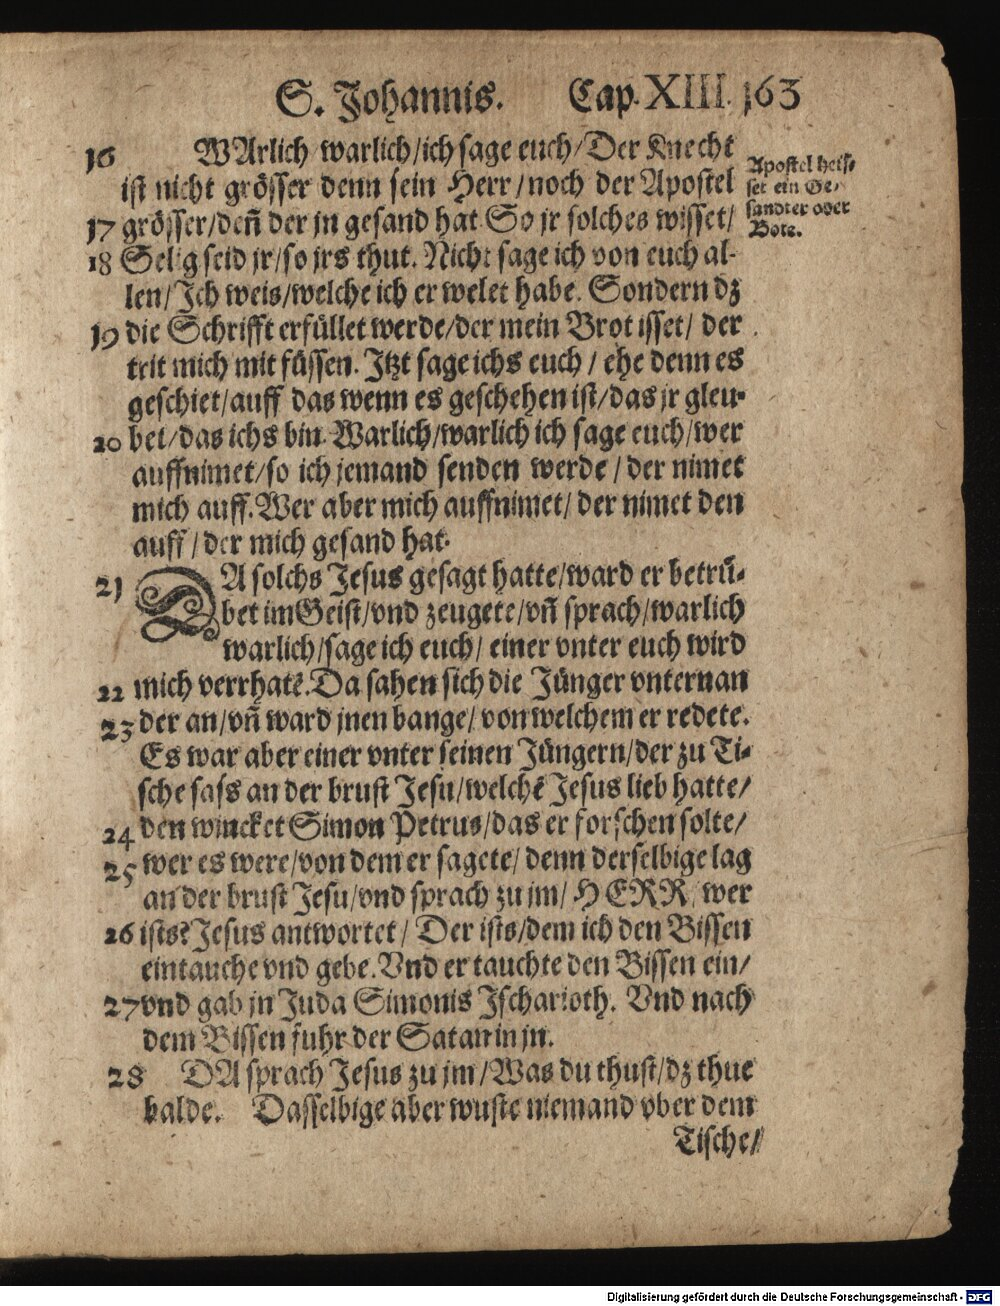 S. Johannis. Cap. XIII. 163
16 WArlich warlich/ich sage euch/Der Knecht
ist nicht grösser denn sein Herr/noch der Apostel
17 grösser/deñ der jn gesand hat. So jr solches wisset/
18 Selig seid jr/so jrs thut. Nicht sage ich von euch al-
len/Ich weis/welche ich erwelet habe. Sondern dz
19 die Schrifft erfüllet werde/der mein Brot isset/ der
trit mich mit füssen. Jtzt sage ichs euch/ ehe denn es
geschiet/auff das wenn es geschehen ist/das jr gleu-
20 bet/das ichs bin. Warlich/warlich ich sage euch/wer
auffnimet/so ich jemand senden werde/ der nimet
mich auff. Wer aber mich auffnimet/ der nimet den
auff/der mich gesand hat.
21 DA solchs Jesus gesagt hatte/ward er betrü-
bet im Geist/vnd zeugete/vñ sprach/warlich
warlich/sage ich euch/ einer vnter euch wird
22 mich verrhatẽ. Da sahen sich die Jünger vnternan
23 der an/vñ ward jnen bange/ von welchem er redete.
Es war aber einer vnter seinen Jüngern/der zu Ti-
sche sass an der brust Jesu/welchẽ Jesus lieb hatte/
24 den wincket Simon Petrus/das er forschen solte/
25 wer es were/von dem er sagete/ denn derselbige lag
an der brust Jesu/vnd sprach zu jm/ HERR/ wer
26 ists? Jesus antwortet/ Der ists/dem ich den Bissen
eintauche vnd gebe. Vnd er tauchte den Bissen ein/
27 vnd gab jn Juda Simonis Jscharioth. Vnd nach
dem Bissen fuhr der Satan in jn.
28 DA sprach Jesus zu jm/Was du thust/dz thue
balde. Dasselbige aber wuste niemand vber dem
Tische/
Apostel heis-
set ein Ge-
sandter oder
Bote.
Digitalisierung gefördert durch die Deutsche Forschungsgemeinschaft - DFG